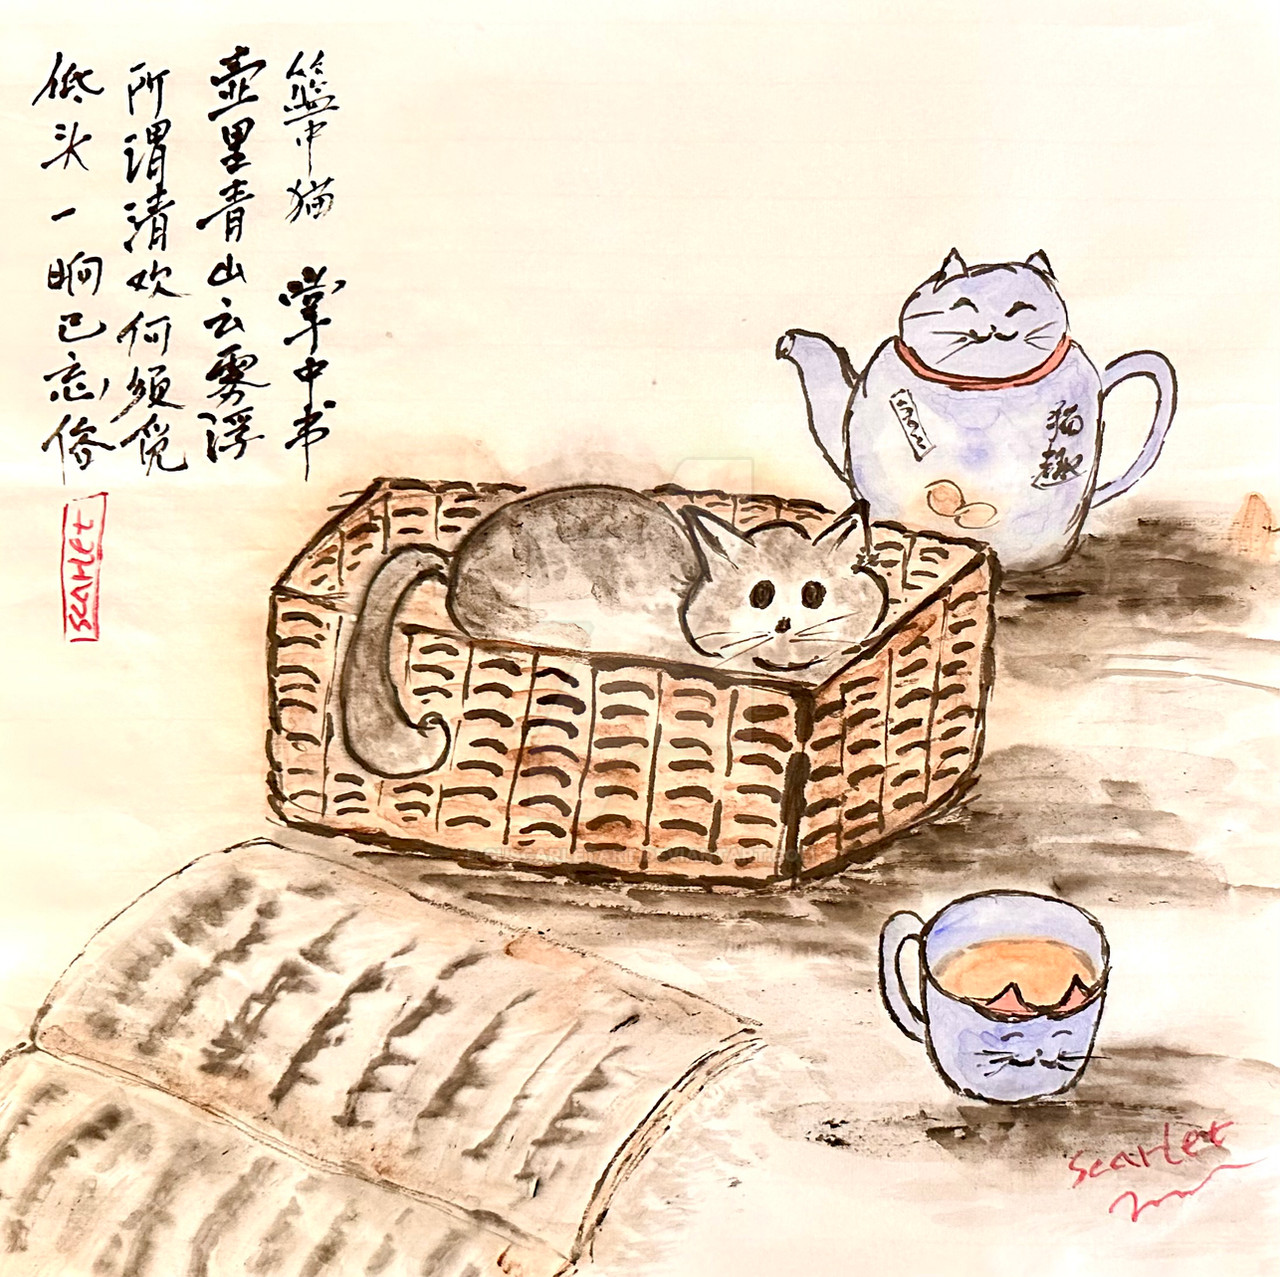 篮中猫 掌中书
壶里青山云雾浮
所谓清欢何须觅
低头一晌已忘俗
scarlet
猫趣
scarlet